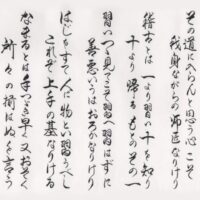 その道に入らんと思う心こそ
我身ながらの師匠なりけり
稽古とは一より習い十を知り
十より帰るもとのその一
習いつゝ見てこそ習へ習はずに
善悪いうはおろかなりける
はじをすて人に物とい習うべし
これぞ上手の基なりける
なまるとは手つづき早く又おそく
所々の揃はぬを言う